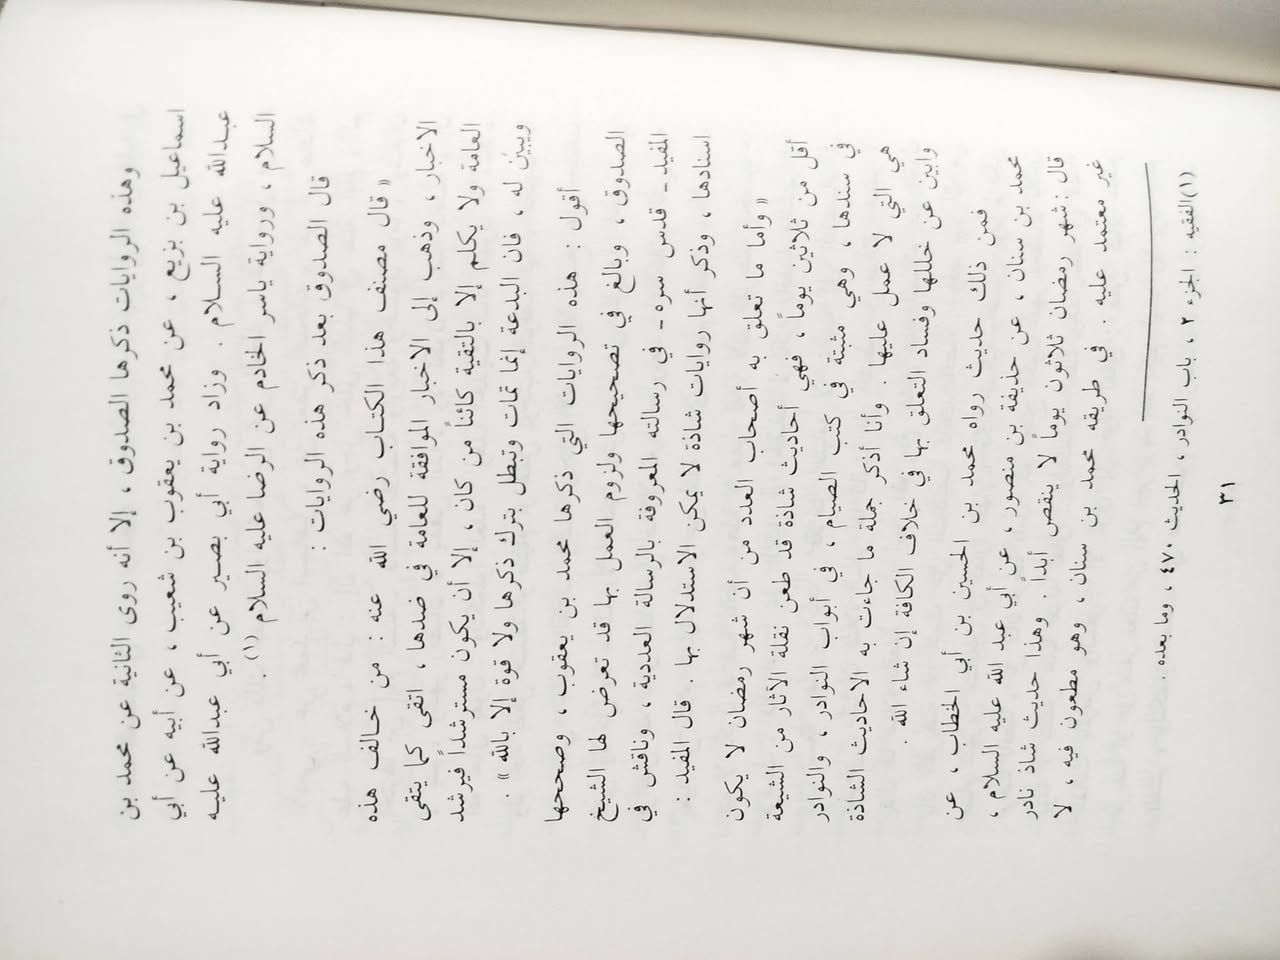 وهذه الروايات ذكرها الصدوق ، إلا أنه روى الثانية عن محمد بن
اسماعيل بن بزيع ، عن محمد بن يعقوب بن شعيب ، عن أبيه عن أبي
عبدالله عليه السلام . وزاد رواية أبي بصير عن أبي عبدالله عليه
السلام ، ورواية ياسر الخادم عن الرضا عليه السلام (١).
قال الصدوق بعد ذكر هذه الروايات :
« قال مصنف هذا الكتاب رضي الله عنه : من خالف هذه
الاخبار ، وذهب إلى الاخبار الموافقة للعامة في ضدها ، اتقى كما يتقى
العامة ولا يكلم إلا بالتقية كائناً من كان ، إلا أن يكون مسترشداً فيرشد
ويبين له ، فان البدعة إنما تمات وتبطل بترك ذكرها ولا قوة إلا بالله » .
أقول : هذه الروايات التي ذكرها محمد بن يعقوب ، وصححها
الصدوق ، وبالغ في تصحيحها ولزوم العمل بها قد تعرض لها الشيخ
المفيد ـ قدس سره ـ في رسالته المعروفة بالرسالة العددية ، وناقش في
اسنادها ، وذكر أنها روايات شاذة لا يمكن الاستدلال بها . قال المفيد :
« وأما ما تعلق به أصحاب العدد من أن شهر رمضان لا يكون
أقل من ثلاثين يوماً ، فهي أحاديث شاذة قد طعن نقلة الآثار من الشيعة
في سندها ، وهي مثبتة في كتب الصيام ، في أبواب النوادر ، والنوادر
هي التي لا عمل عليها . وأنا أذكر جملة ما جاءت به الاحاديث الشاذة
وابين عن خللها وفساد التعلق بها في خلاف الكافة إن شاء الله .
فمن ذلك حديث رواه محمد بن الحسين بن أبي الخطاب ، عن
محمد بن سنان ، عن حذيفة بن منصور ، عن أبي عبد الله عليه السلام ،
قال : شهر رمضان ثلاثون يوماً لا ينقص أبداً . وهذا حديث شاذ نادر
غير معتمد عليه . في طريقه محمد بن سنان ، وهو مطعون فيه ، لا
(١) الفقيه : الجزء ٢ ، باب النوادر ، الحديث ٤٧٠ ، وما بعده .
٣١